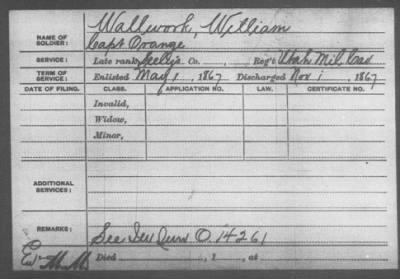 NAME OF SOLDIER: Wallwork, William
Capt Orange
SERVICE: Late rank, Seely's Co. , Reg't Utah Mil. Cav
TERM OF SERVICE: Enlisted May 1, 1867 Discharged Nov 1, 1867
DATE OF FILING. CLASS. APPLICATION NO. LAW. CERTIFICATE NO.
Invalid,
Widow,
Minor,
ADDITIONAL SERVICES:
REMARKS: See Ind Surv O. 14261
Died , 1 , at